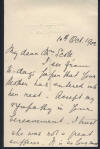 14th Oct. 1900
My dear Mrs Scott
I see from
to-day's paper that your
Mother has entered into
her rest. Accept my
sympathy in your
bereavement. I trust
she was not a great
sufferer. It is so long